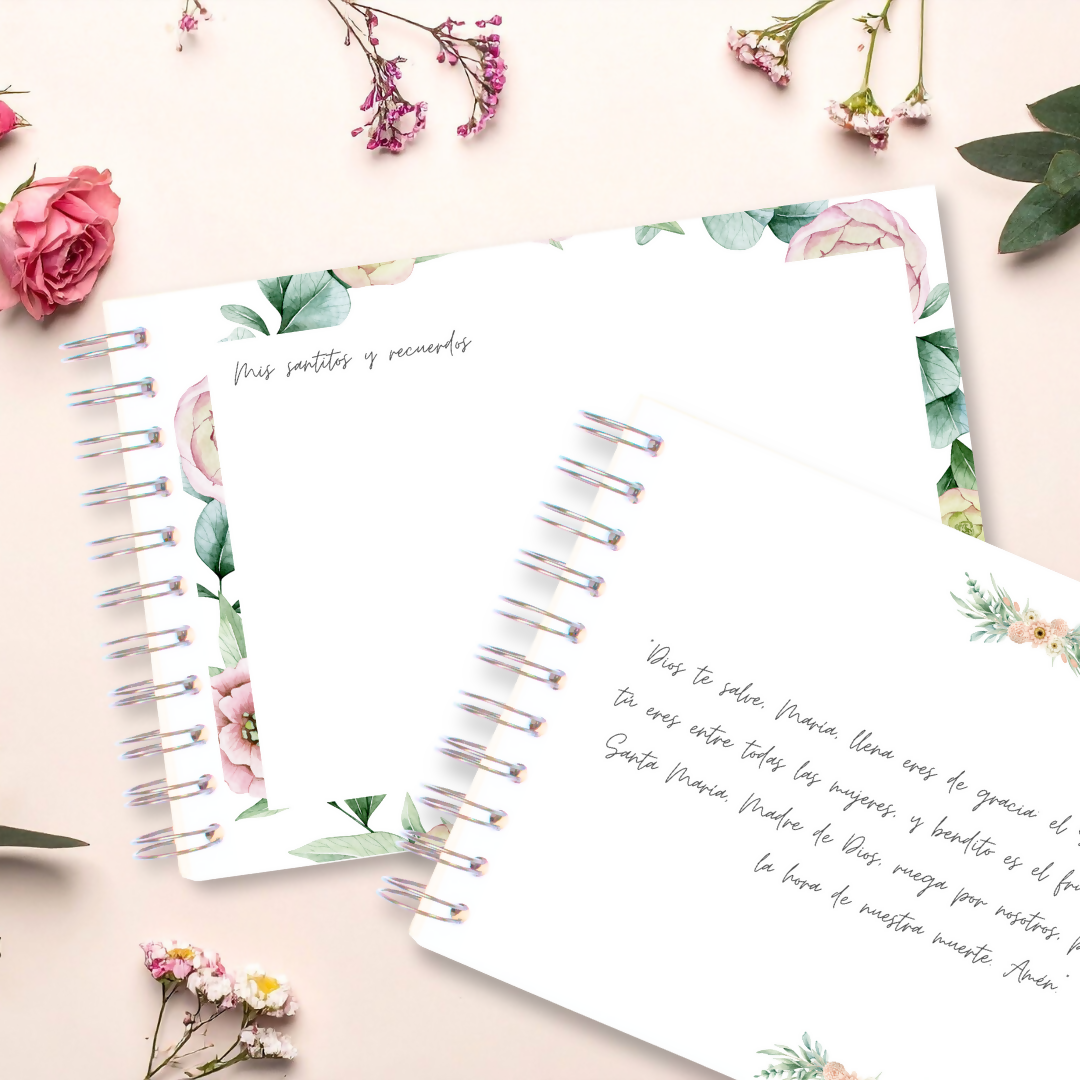 Mis santitos y recuerdos
"Dios te salve, María, llena eres de gracia el
tú eres entre todas las mujeres, y bendito es el
Santa María, Madre de Dios, ruega por nosotros,
la hora de nuestra muerte. Amén."